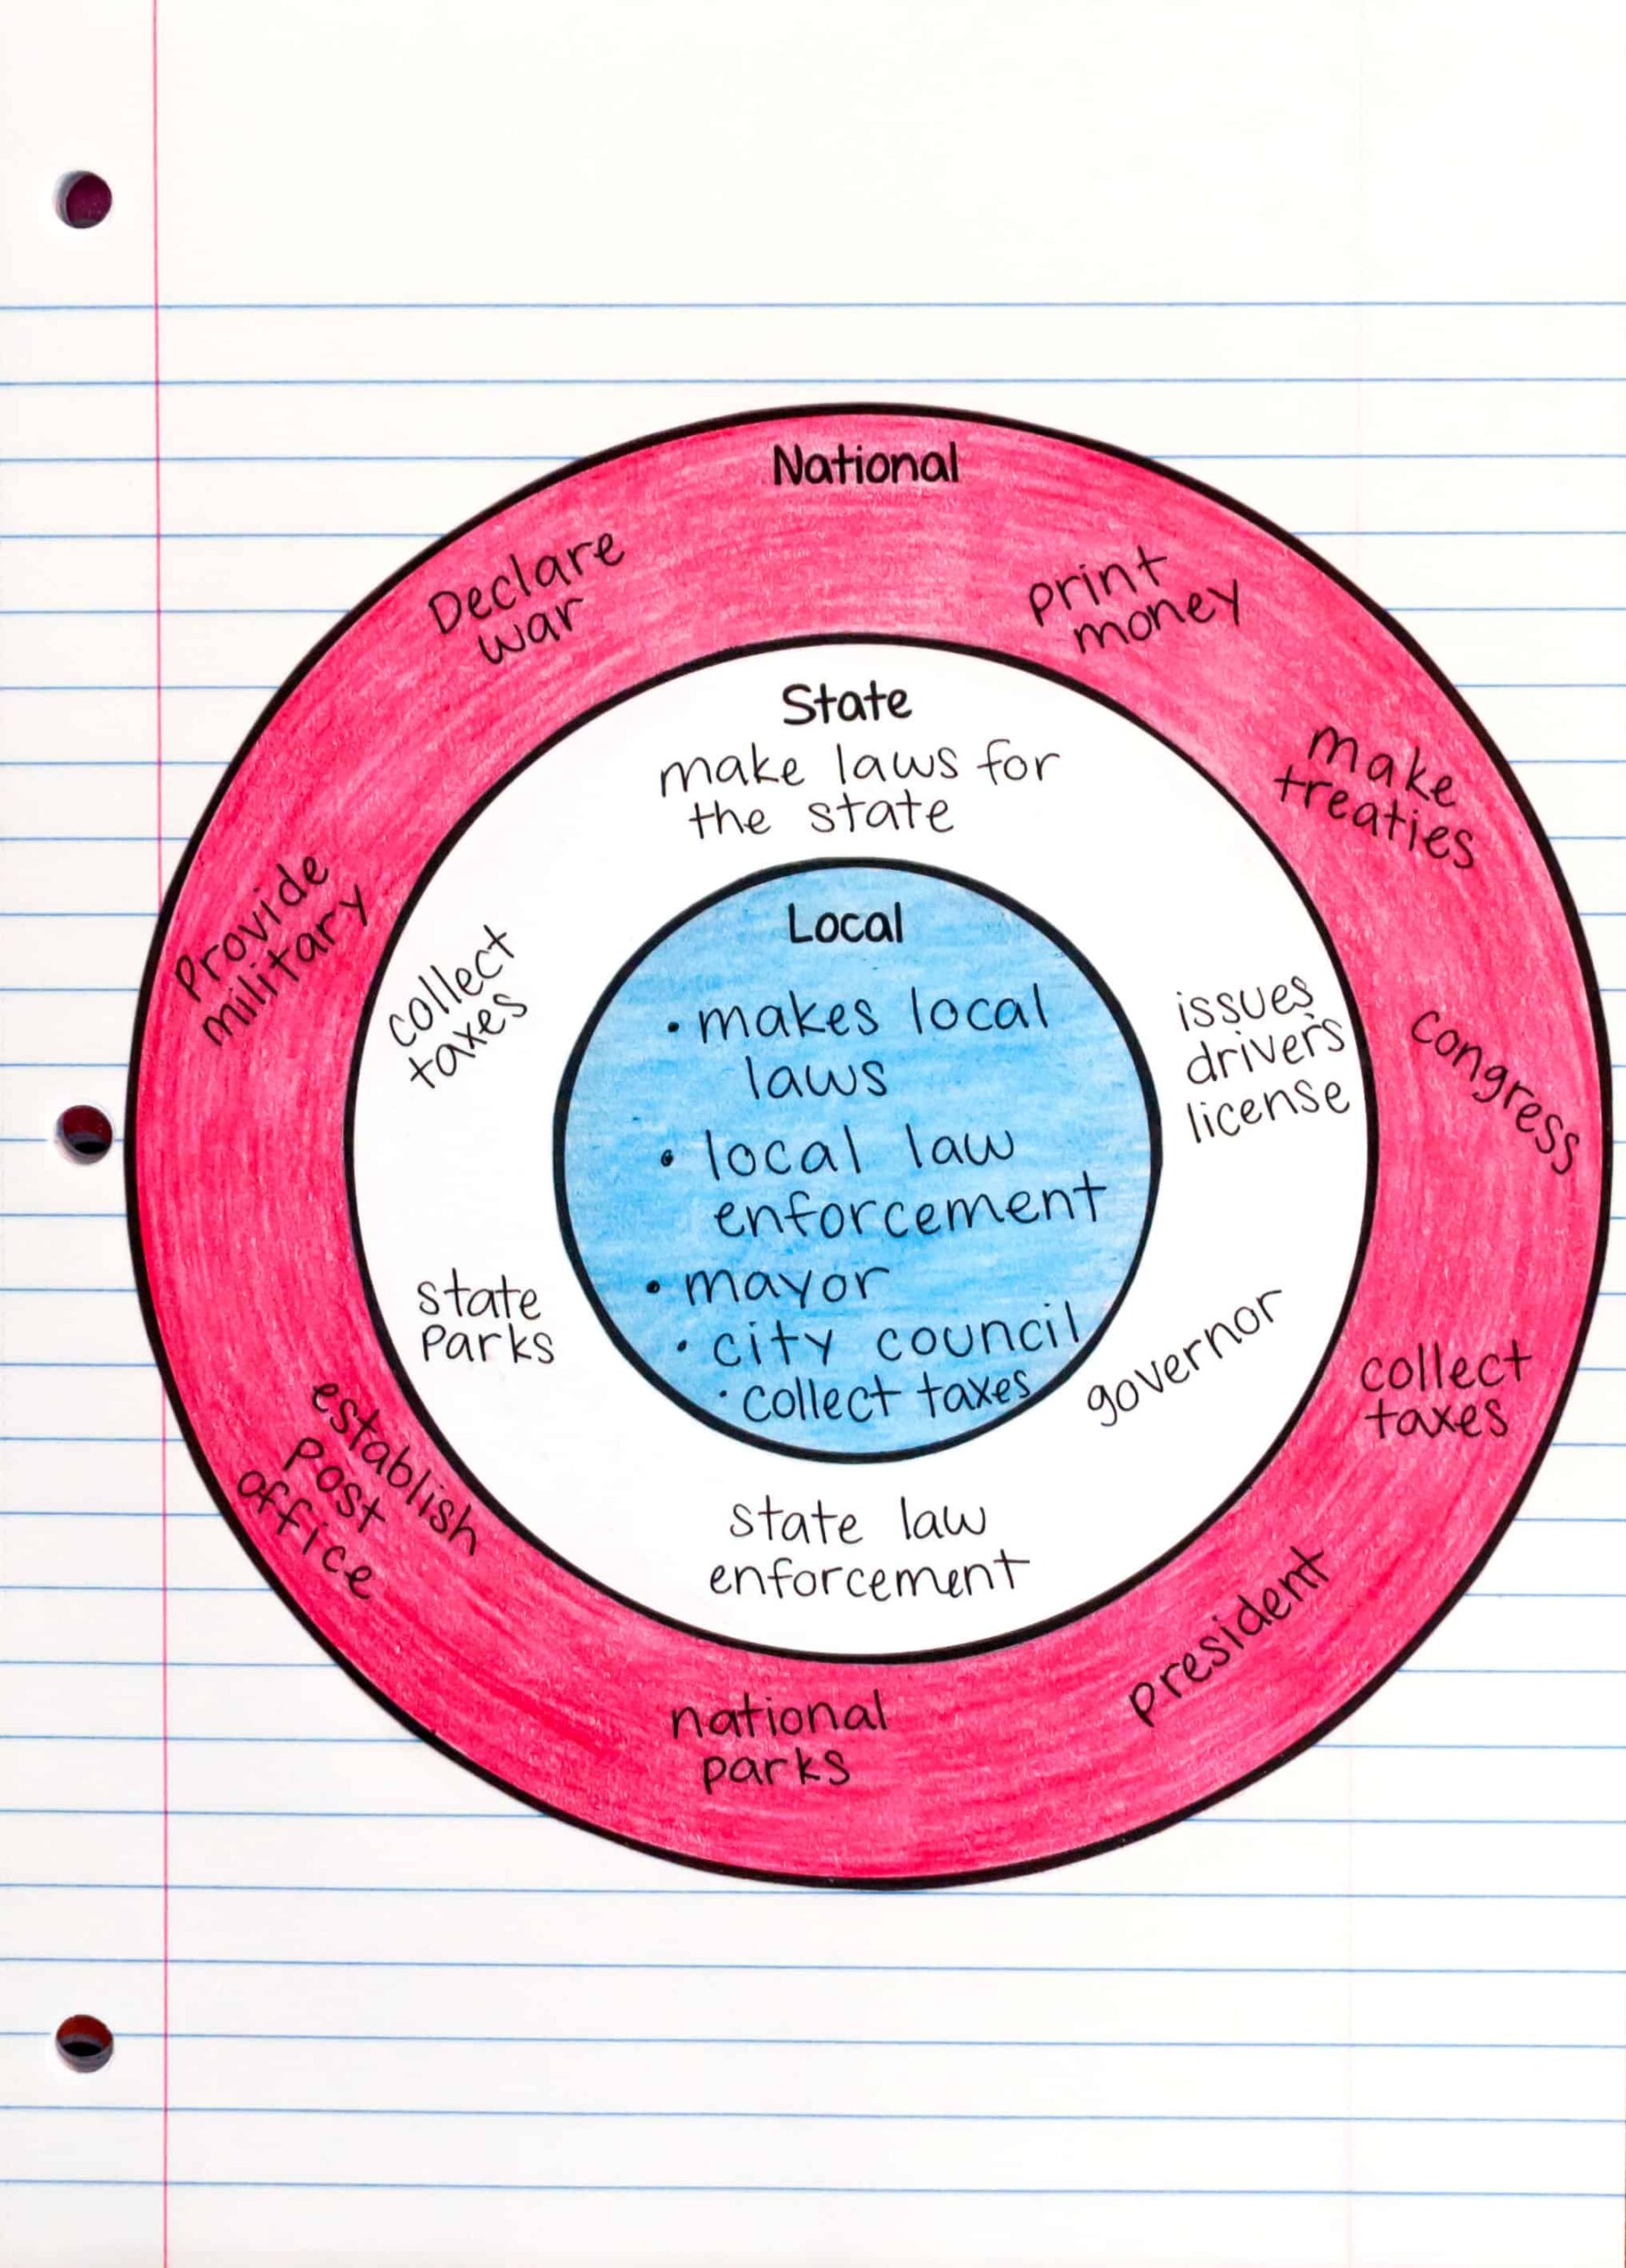 National
Declare
war
print
money
make
treaties
Provide
military
congress
establish
post
office
collect
taxes
president
national
parks
State
make laws for
the state
collect
taxes
issues
driver's
license
state
parks
governor
state law
enforcement
Local
• makes local
laws
• local law
enforcement
• mayor
• city council
• collect taxes